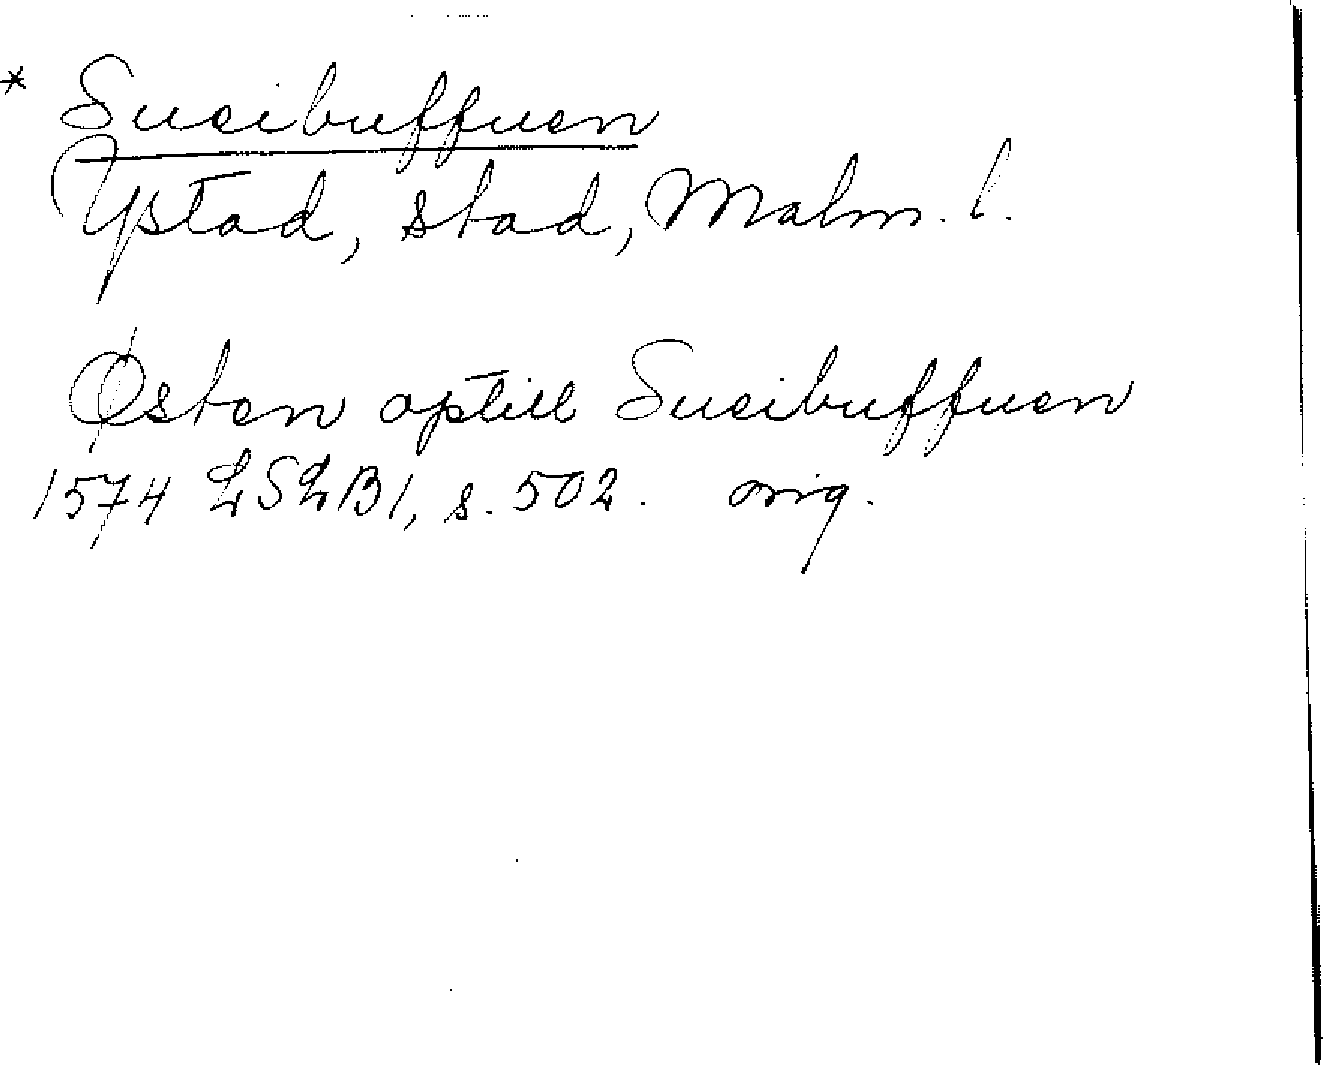 * Sueibuffuen
Ystad, stad, Malm. l.
Østen optill Sueibuffuen
1574 LSLB1, s. 502. orig.